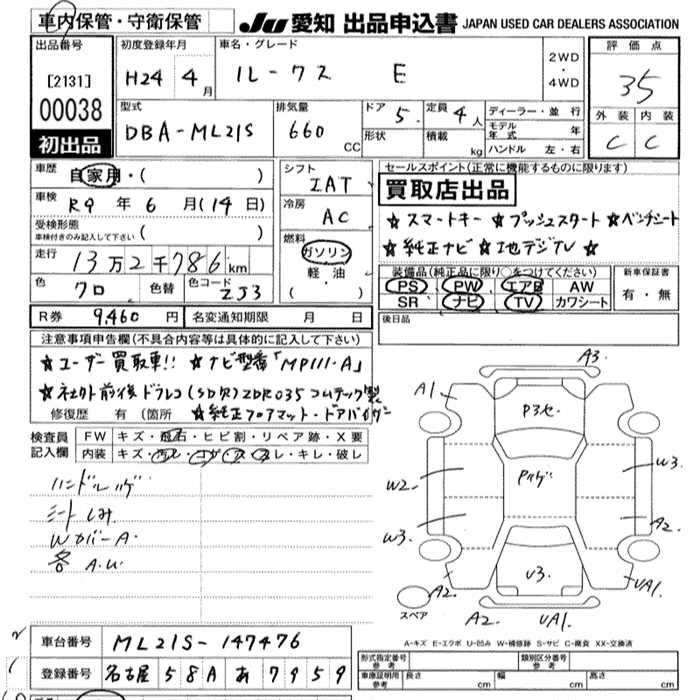 車内保管・守衛保管
JU 愛知 出品申込書 JAPAN USED CAR DEALERS ASSOCIATION
出品番号
[2131]
00038
初出品
初度登録年月
H24 4月
車名・グレード
ルークス E
2WD
・
4WD
評価点
35
外装 内装
C C
型式
DBA-ML21S
排気量
660 CC
ドア 5
形状
定員 4人
積載 kg
ディーラー・並行
モデル年式 年
ハンドル 左・右
車歴
自家用・( )
車検
R9年6月(14日)
受検形態
車検付きのみ記入して下さい ( )
走行
13万2千786km
色
クロ
色替
色コード
ZJ3
シフト
IAT
冷房
AC
燃料
ガソリン
軽油
( ・ )
セールスポイント(正常に機能するものに限ります)
買取店出品
☆スマートキー ☆プッシュスタート ☆ベンチシート
☆純正ナビ ☆地デジTV ☆
装備品(純正品に限り○をつけてください)
PS PW エアB AW
SR ナビ TV カワシート
新車保証書
有・無
R券 9,460円
名変通知期限 月 日
後日品
注意事項申告欄(不具合内容等は具体的に記入して下さい)
☆ユーザー買取車!! ☆ナビ型番「MP111-A」
☆社外前後ドラレコ(SD欠)ZDR035コムテック製
修復歴 有(箇所 ☆純正フロアマット・ドアバイザー
検査員記入欄
FW キズ・飛石・ヒビ割・リペア跡・X要
内装 キズ・汚レ・コゲ・ス・スレ・キレ・破レ
ハンドルハゲ
シートしみ
WカバーA
各A.U
A3
A1
P3セ
W2
Pハゲ
W3
W3
A2
V3
A2
UA1
スペア
A2
UA1
A-キズ E-エクボ U-凹み W-補修跡 S-サビ C-腐食 XX-交換済
車台番号 ML21S-147476
登録番号 名古屋 58A あ 7959
形式指定番号
参考
類別区分番号
参考
車庫証明用
参考
長さ cm 幅 cm 高さ cm